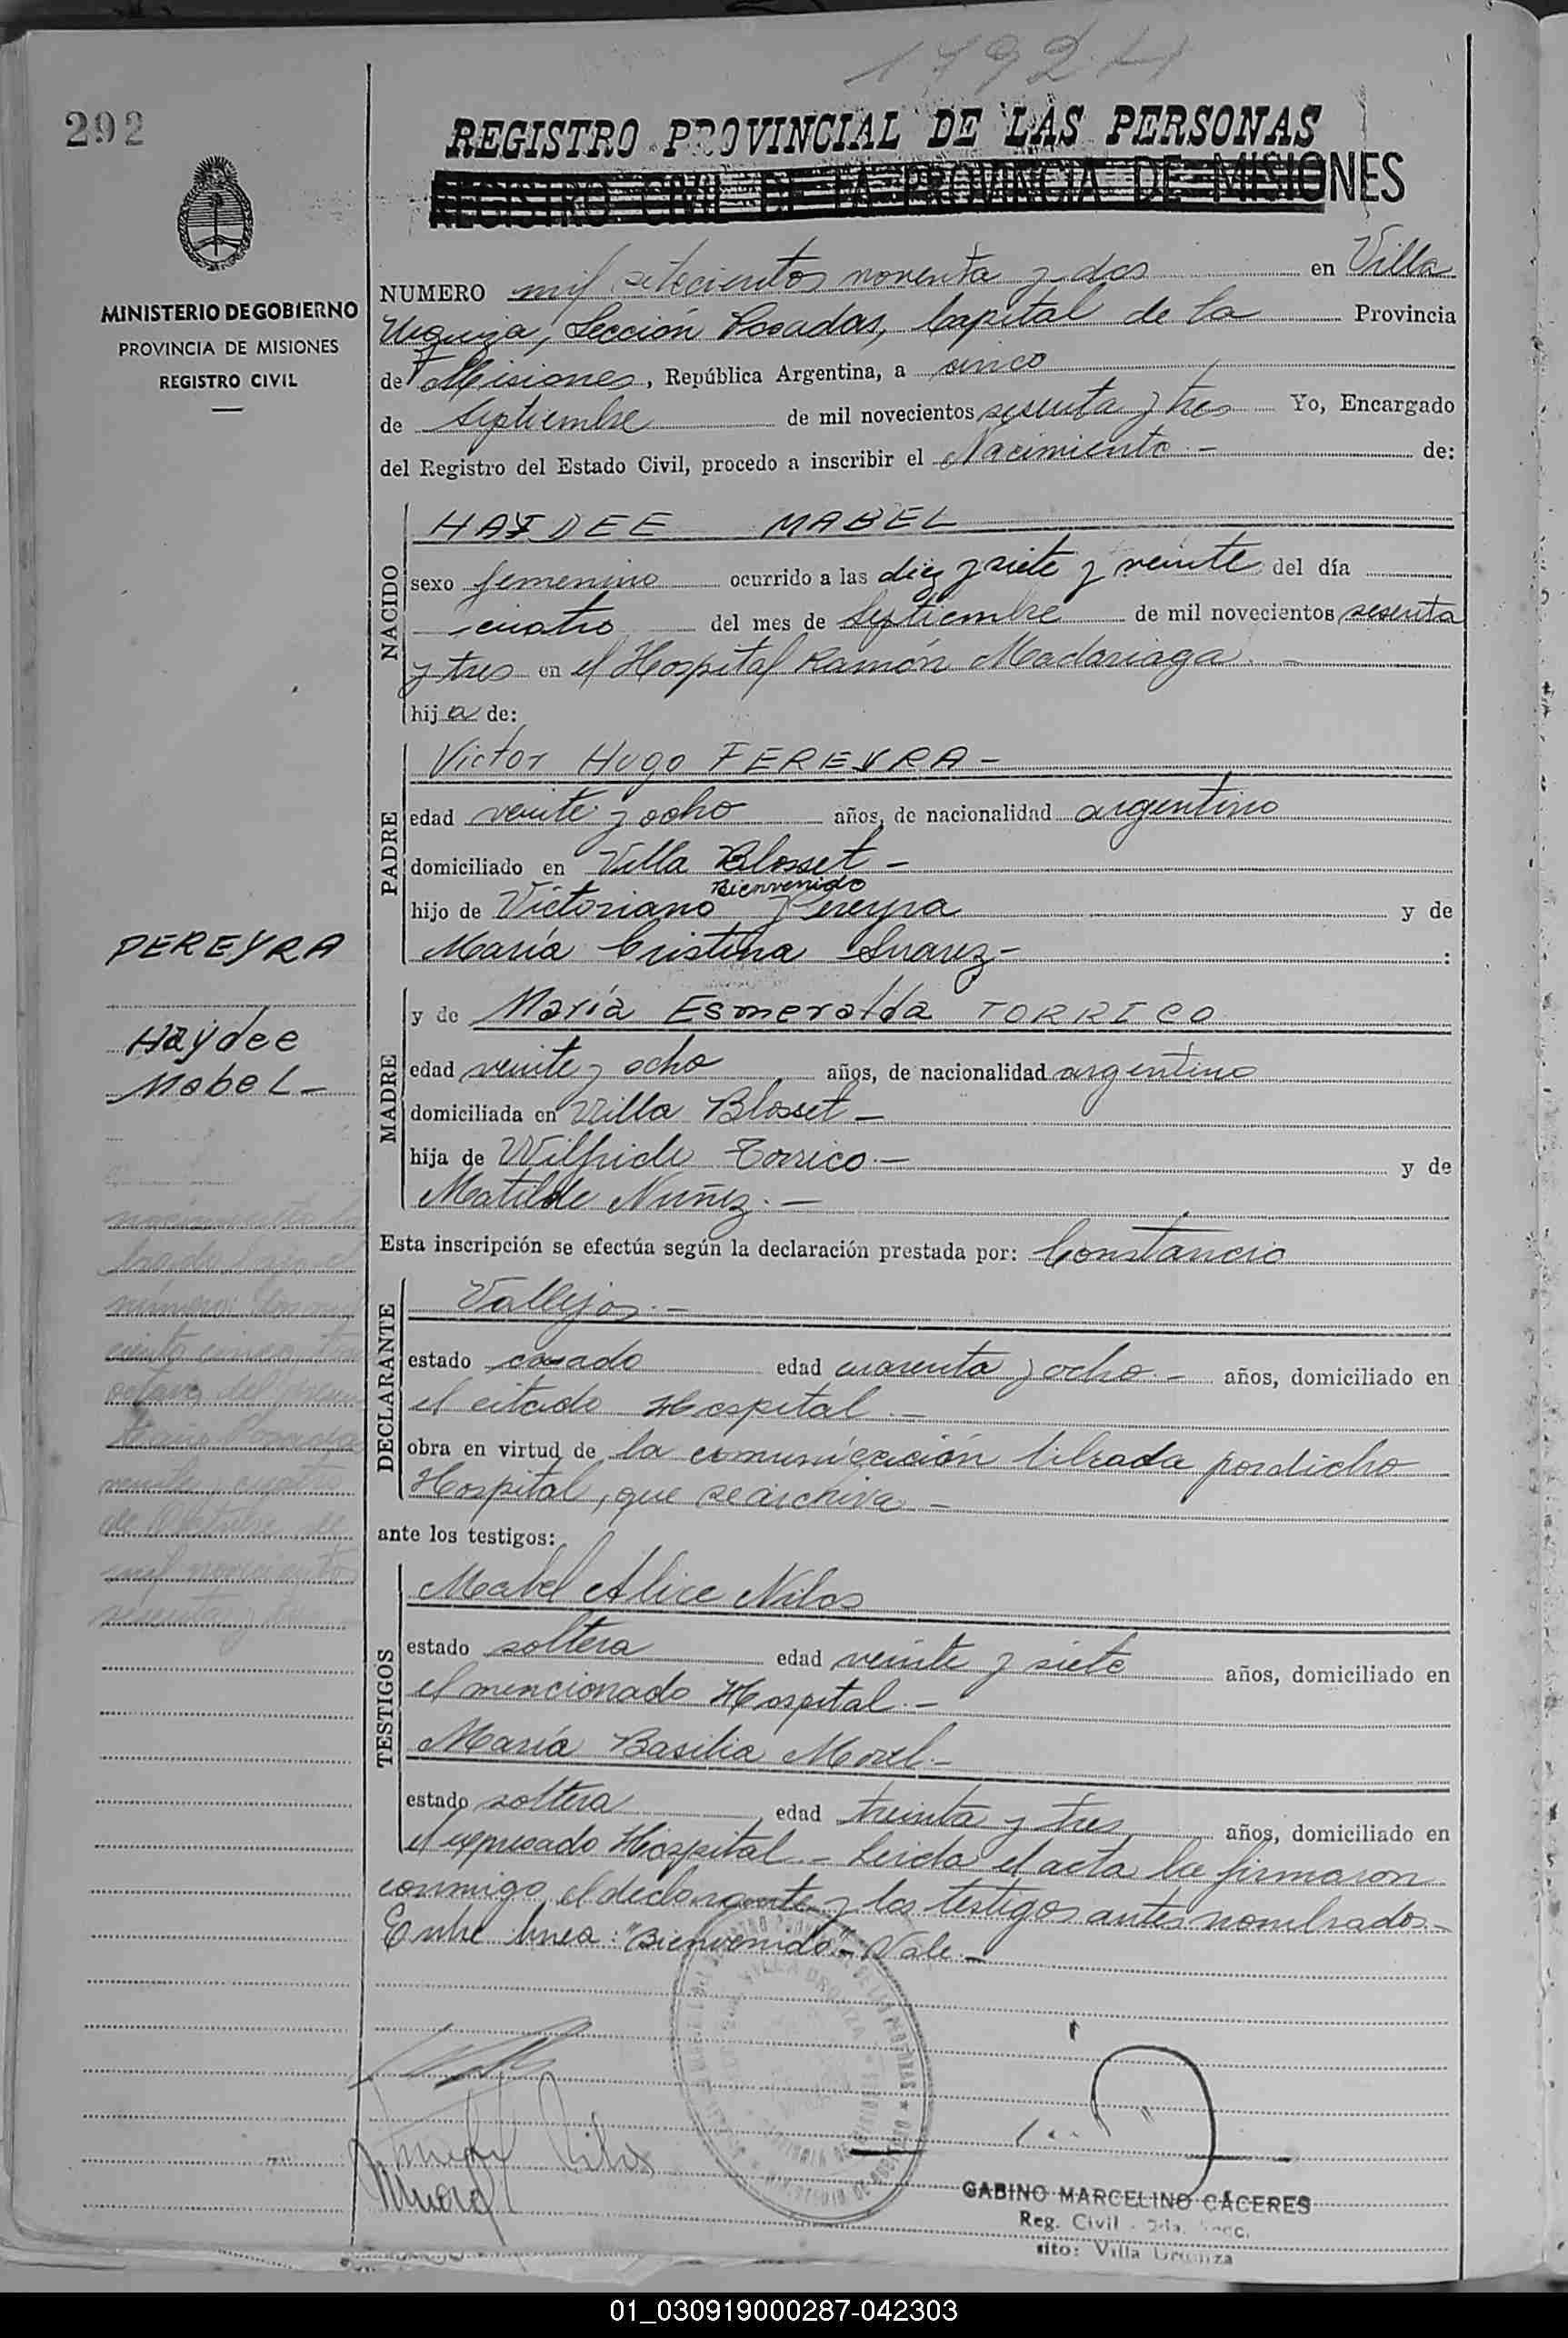 1792 H
292
REGISTRO PROVINCIAL DE LAS PERSONAS
REGISTRO CIVIL DE LA PROVINCIA DE MISIONES
MINISTERIO DE GOBIERNO
PROVINCIA DE MISIONES
REGISTRO CIVIL
NUMERO mil setecientos noventa y dos en Villa
Urquiza, Sección Posadas, Capital de la Provincia
de Misiones, República Argentina, a cinco
de Septiembre de mil novecientos sesenta y tres Yo, Encargado
del Registro del Estado Civil, procedo a inscribir el Nacimiento.- de:
NACIDO
HAYDEE MABEL
sexo femenino ocurrido a las diez y siete y veinte del día
cuatro del mes de Septiembre de mil novecientos sesenta
y tres en el Hospital Ramón Madariaga. -
hija de:
PADRE
Victor Hugo PEREYRA -
edad veinte y ocho años, de nacionalidad argentino
domiciliado en Villa Blosset -
Bienvenido
hijo de Victoriano Pereyra y de
María Cristina Suarez -
PEREYRA
Haydee
Mabel -
MADRE
y de María Esmeralda TORRICO
edad veinte y ocho años, de nacionalidad argentina
domiciliada en Villa Blosset -
hija de Wilfrido Torrico. - y de
Matilde Nuñez. -
Esta inscripción se efectúa según la declaración prestada por: Constancio
DECLARANTE
Vallejos. -
estado casado edad cuarenta y ocho. - años, domiciliado en
el citado Hospital. -
obra en virtud de la comunicación librada por dicho
Hospital, que se archiva -
ante los testigos:
TESTIGOS
Mabel Alice Nilos
estado soltera edad veinte y siete años, domiciliado en
el mencionado Hospital. -
María Basilia Morel. -
estado soltera edad treinta y tres años, domiciliado en
el expresado Hospital. - Leída el acta la firmaron
conmigo, el declarante y los testigos antes nombrados. -
Entre línea: "Bienvenido" - Vale. -
GABINO MARCELINO CÁCERES
Reg. Civil
Villa Urquiza
01_030919000287-042303